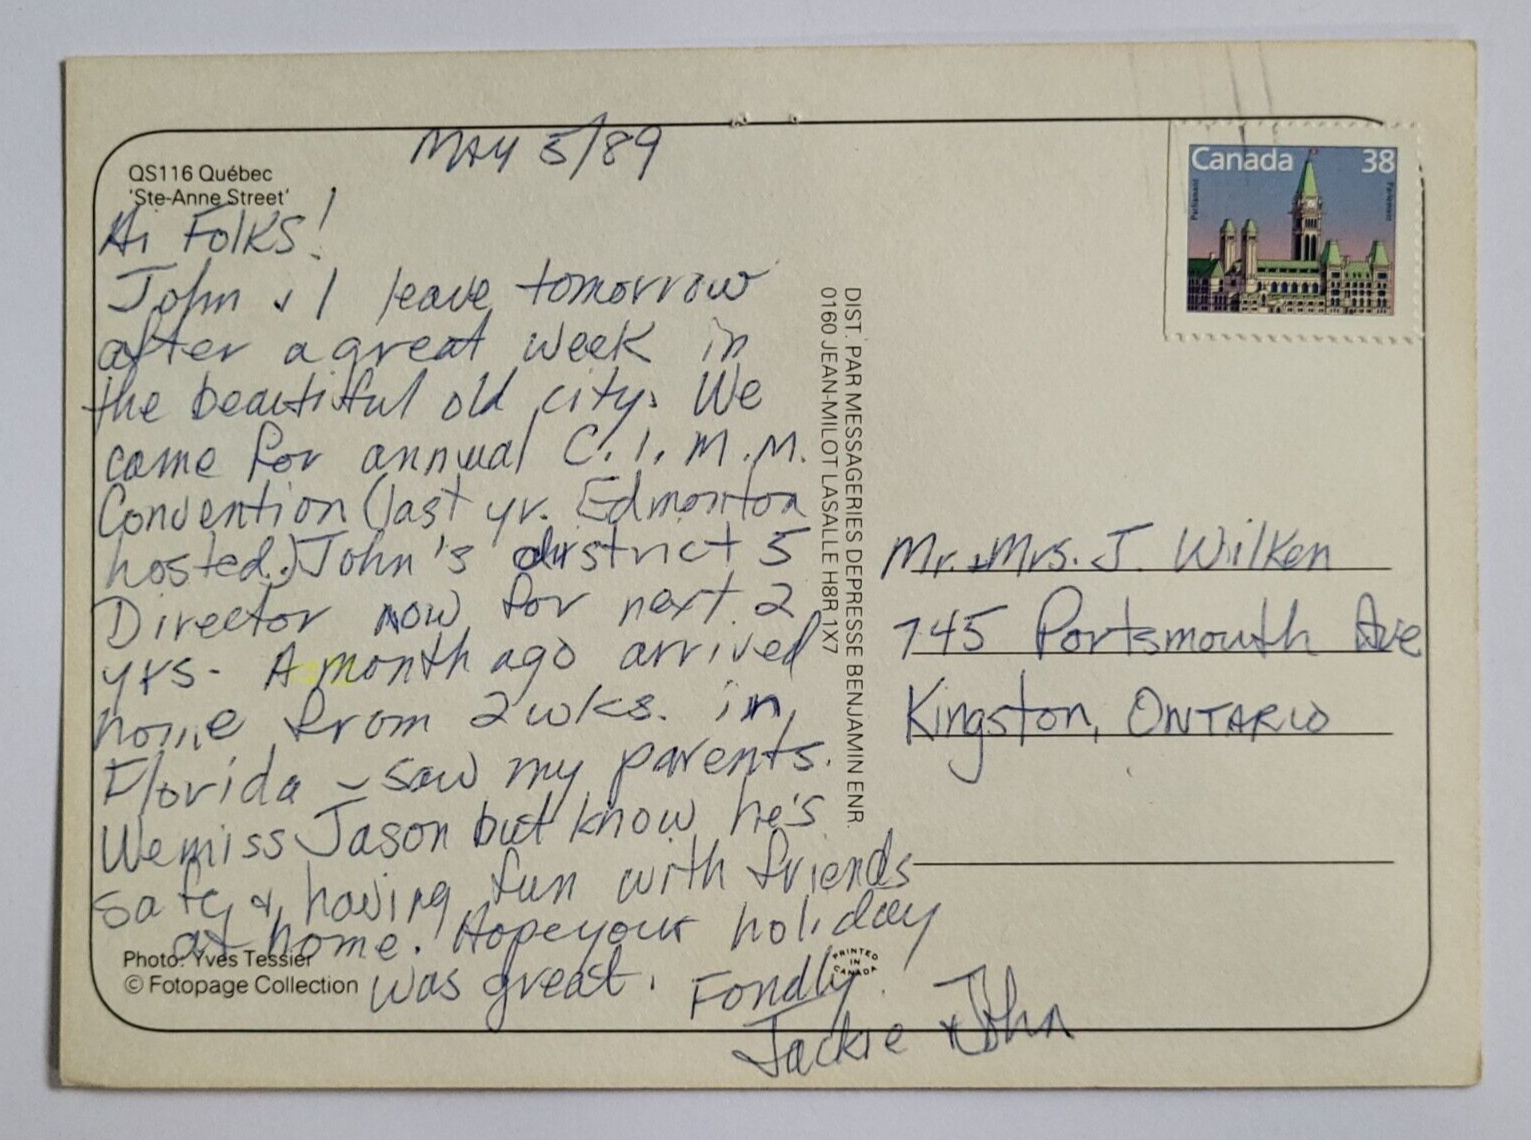 MAY 5/89
QS116 Québec
'Ste-Anne Street'
Hi Folks!
John & I leave tomorrow
after a great week in
the beautiful old city. We
came for annual C.I.M.M.
Convention (last yr. Edmonton
hosted.) John's district 5
Director now for next 2
yrs. A month ago arrived
home from 2 wks. in
Florida - saw my parents.
We miss Jason but know he's
safe & having fun with friends
at home. Hope your holiday
was great. Fondly.
Jackie & John
Photo: Yves Tessier
© Fotopage Collection
DIST. PAR MESSAGERIES DEPRESSE BENJAMIN ENR.
0160 JEAN-MILOT LASALLE H8R 1X7
PRINTED
IN
CANADA
Canada 38
Parliament
Parlement
Mr. & Mrs. J. Wilken
745 Portsmouth Ave
Kingston, ONTARIO